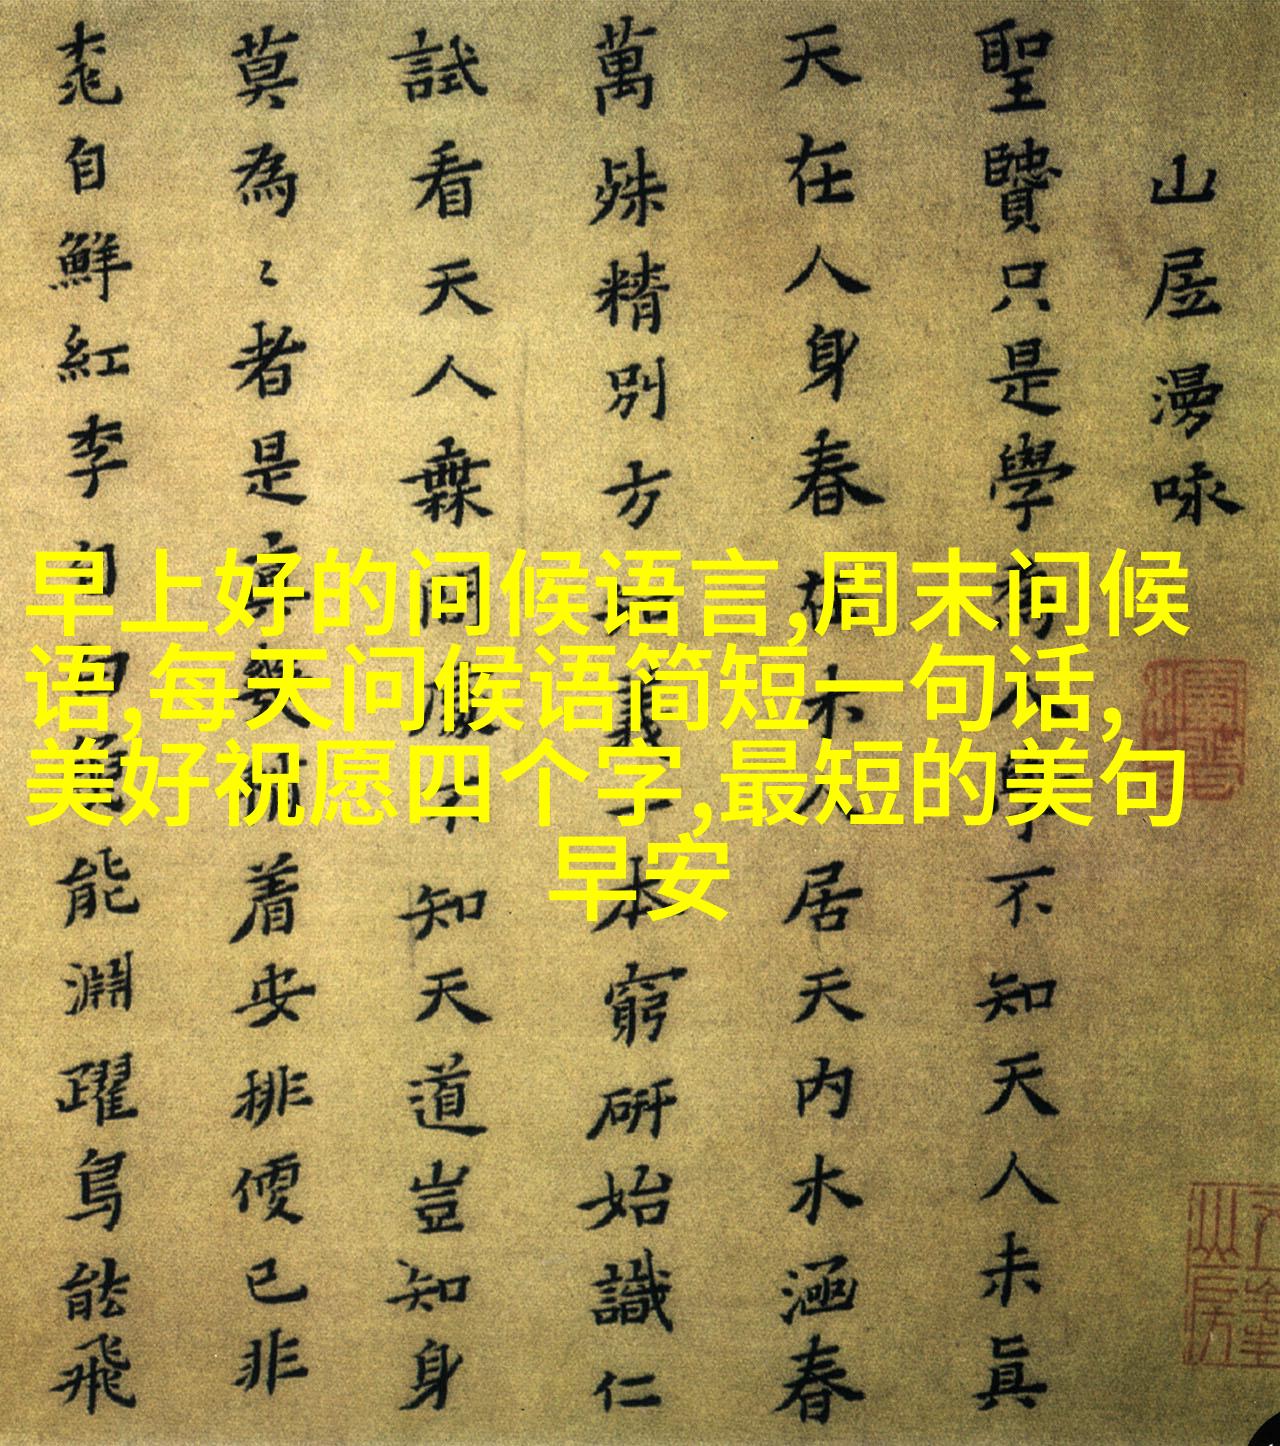 山居漫咏
聖賢只是學為人學不知天人未真
天在人身春在木人居天内木涵春
萬殊精別方知義一本窮研始識仁
試看天人無間處不知天道豈知身
莫為〻者是幾着安排便已非
桃自鮮紅李自白魚能淵躍鳥能飛
早上好的问候语言,周末问候
语,每天问候语简短一句话,
美好祝愿四个字,最短的美句
早安